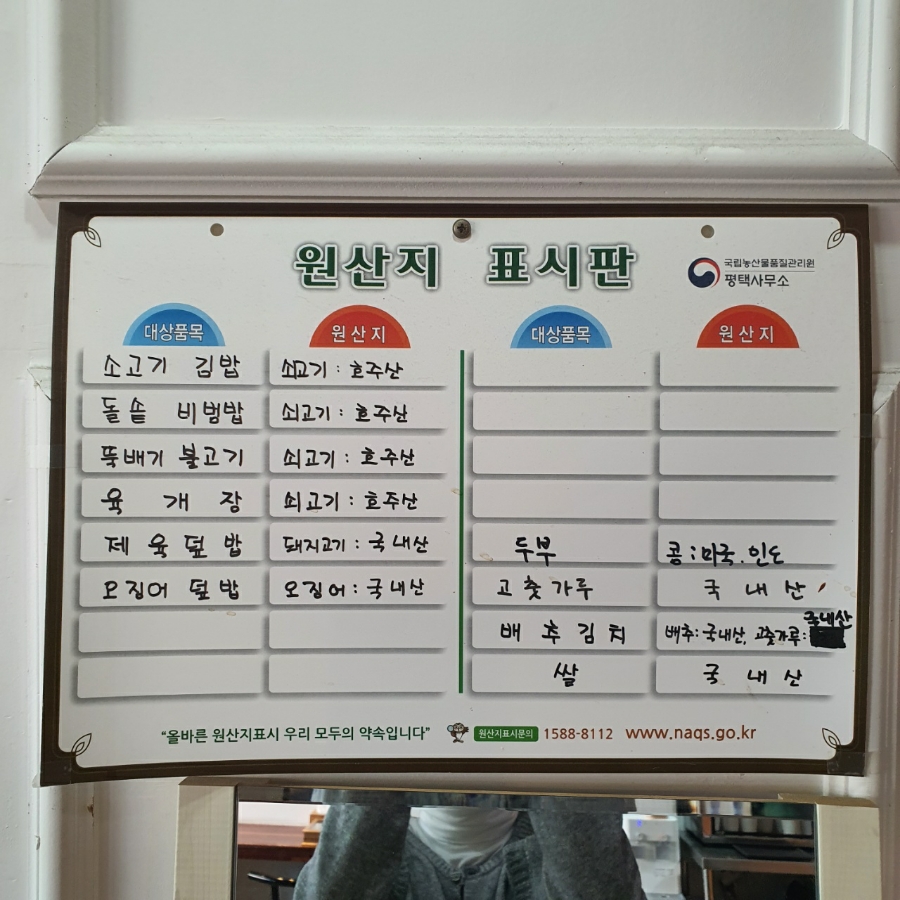 원산지 표시판
국립농산물품질관리원
평택사무소
대상품목 원산지 대상품목 원산지
소고기 김밥 쇠고기 : 호주산
돌솥 비빔밥 쇠고기 : 호주산
뚝배기 불고기 쇠고기 : 호주산
육개장 쇠고기 : 호주산
제육덮밥 돼지고기 : 국내산 두부 콩 : 미국. 인도
오징어 덮밥 오징어 : 국내산 고춧가루 국내산
배추김치 배추: 국내산, 고춧가루: 국내산
쌀 국내산
"올바른 원산지표시 우리 모두의 약속입니다" 원산지표시문의 1588-8112 www.naqs.go.kr